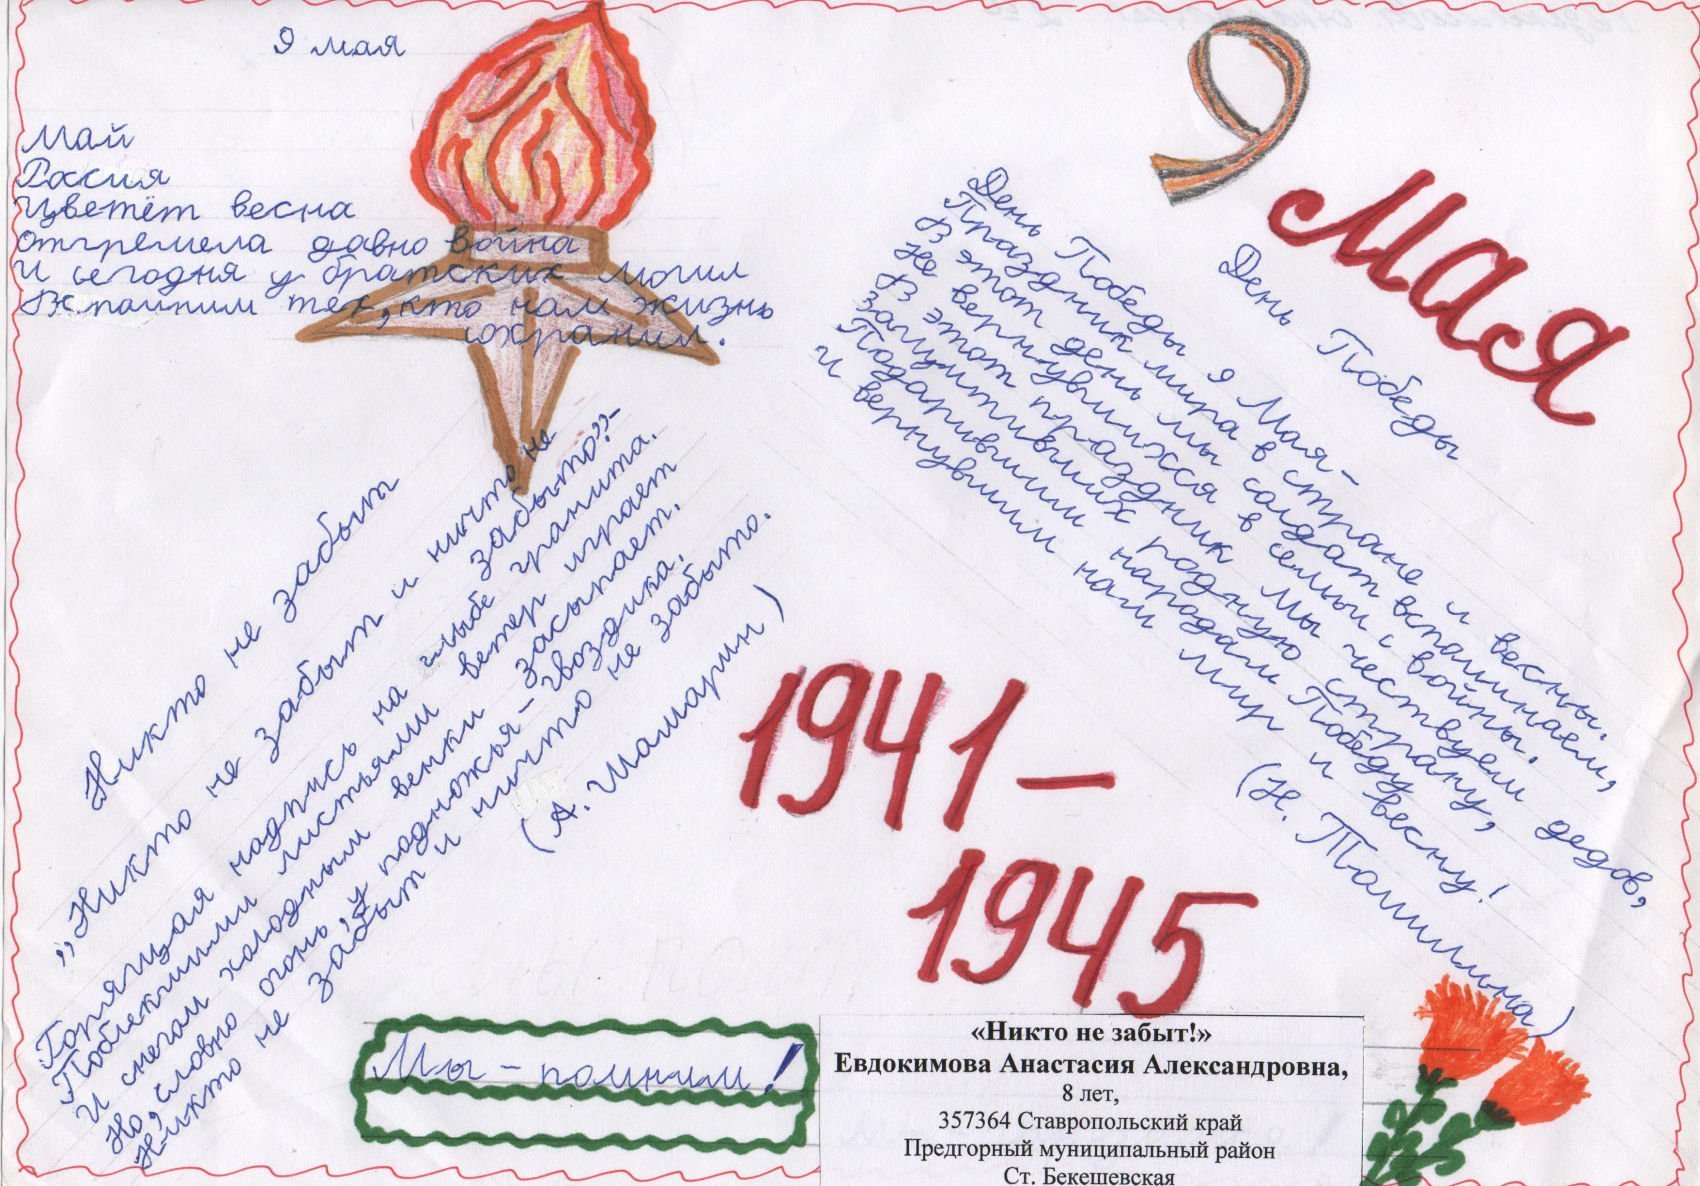 9 мая
Май
Россия
Цветёт весна
отгремела давно война
И сегодня у братских могил
Вспомним тех, кто нам жизнь
сохранил.
Никто не забыт
„Никто не забыт и ничто не
забыто"-
Горящая надпись на глыбе гранита.
Поблекшими листьями ветер играет
И снегом холодным венки засыпает.
Но, словно огонь, у подножья - гвоздика.
Никто не забыт и ничто не забыто.
(А. Шамарин)
9 МАЯ
День Победы
День Победы 9 Мая-
Праздник мира в стране и весны.
В этот день мы солдат вспоминаем,
Не вернувшихся в семьи с войны.
В этот праздник мы чествуем дедов,
Защитивших родную страну,
Подарившим народам Победу
И вернувшим нам мир и весну!
(Н. Томилина)
1941-
1945
Мы - помним!
«Никто не забыт!»
Евдокимова Анастасия Александровна,
8 лет,
357364 Ставропольский край
Предгорный муниципальный район
Ст. Бекешевская